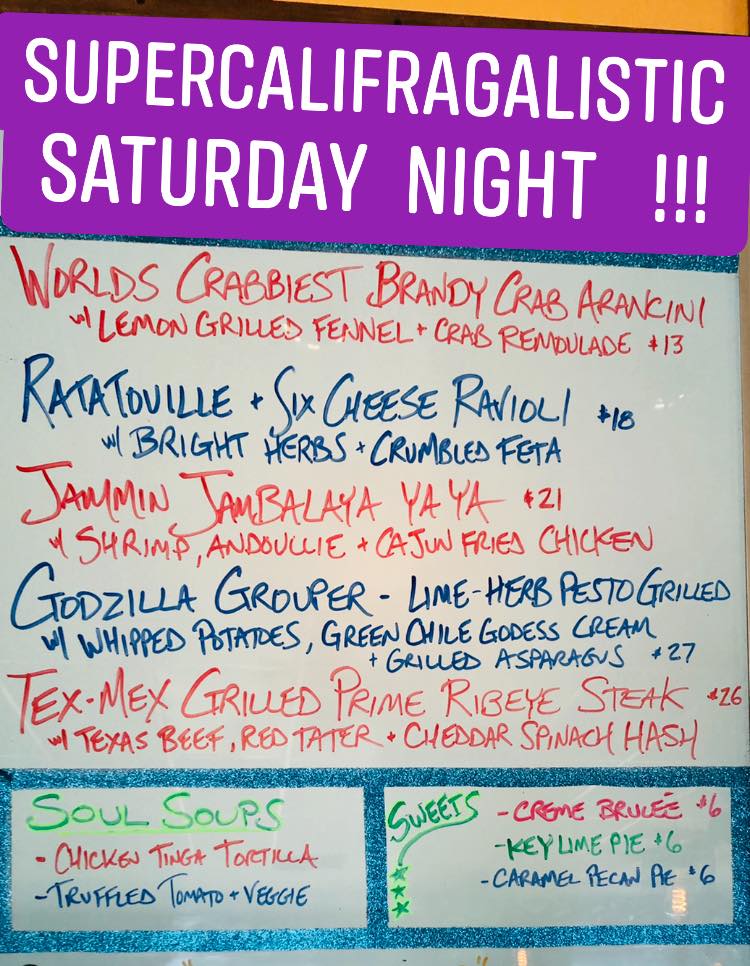 SUPERCALIFRAGALISTIC
SATURDAY NIGHT !!!
WORLDS CRABBIEST BRANDY CRAB ARANCINI
w/ LEMON GRILLED FENNEL + CRAB REMOULADE $13
RATATOUILLE + SIX CHEESE RAVIOLI $18
w/ BRIGHT HERBS + CRUMBLED FETA
JAMMIN JAMBALAYA YA YA $21
w/ SHRIMP, ANDOULLIE + CAJUN FRIED CHICKEN
GODZILLA GROUPER - LIME-HERB PESTO GRILLED
w/ WHIPPED POTATOES, GREEN CHILE GODESS CREAM
+ GRILLED ASPARAGUS $27
TEX-MEX GRILLED PRIME RIBEYE STEAK $26
w/ TEXAS BEEF, RED TATER + CHEDDAR SPINACH HASH
SOUL SOUPS
- CHICKEN TINGA TORTILLA
- TRUFFLED TOMATO + VEGGIE
SWEETS
- CREME BRULÉE $6
- KEY LIME PIE $6
- CARAMEL PECAN PIE $6